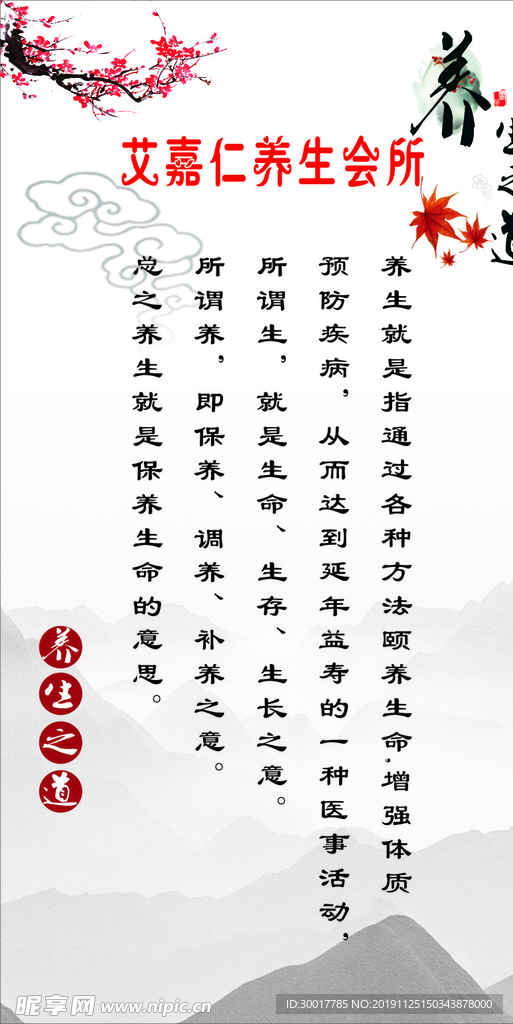 艾嘉仁养生会所
养生之道
养生就是指通过各种方法颐养生命.增强体质
预防疾病，从而达到延年益寿的一种医事活动，
所谓生，就是生命、生存、生长之意。
所谓养，即保养、调养、补养之意。
总之养生就是保养生命的意思。
养生之道
昵享网 www.nipic.cn
ID:30017785 NO:20191125150343878000